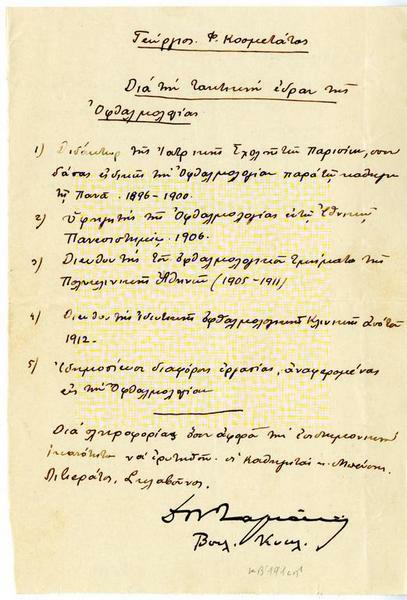 Γεώργιος Φ. Κοσμετάτος
Διά τήν τακτικήν έδραν της
Ὀφθαλμολογίας
1) Διδάκτωρ της Ἰατρικης Σχολης των Παρισίων, σπου
δάσας ειδικως την Ὀφθαλμολογίαν παρά τω καθηγη
τη Πανά. 1896-1900.
2) Ὑφηγητής της Ὀφθαλμολογίας εν τω Ἐθνικω
Πανεπιστημίω. 1906.
3) Διευθυντής του οφθαλμολογικου τμήματος της
Πολυκλινικης Ἀθηνων (1905-1911)
4) Διευθυντής ιδιωτικης οφθαλμολογικης Κλινικης από του
1912.
5) Ἐδημοσίευσε διαφόρους εργασίας, αναφερομένας
εις την Ὀφθαλμολογίαν
Διά πληροφορίας όσον αφορά την επιστημονικήν
ικανότητα να ερωτηθουν οι καθηγηταί κ. Μπένσης,
Λιβιεράτος, Σκλαβουνος.
Βουλ. Κυκλ.